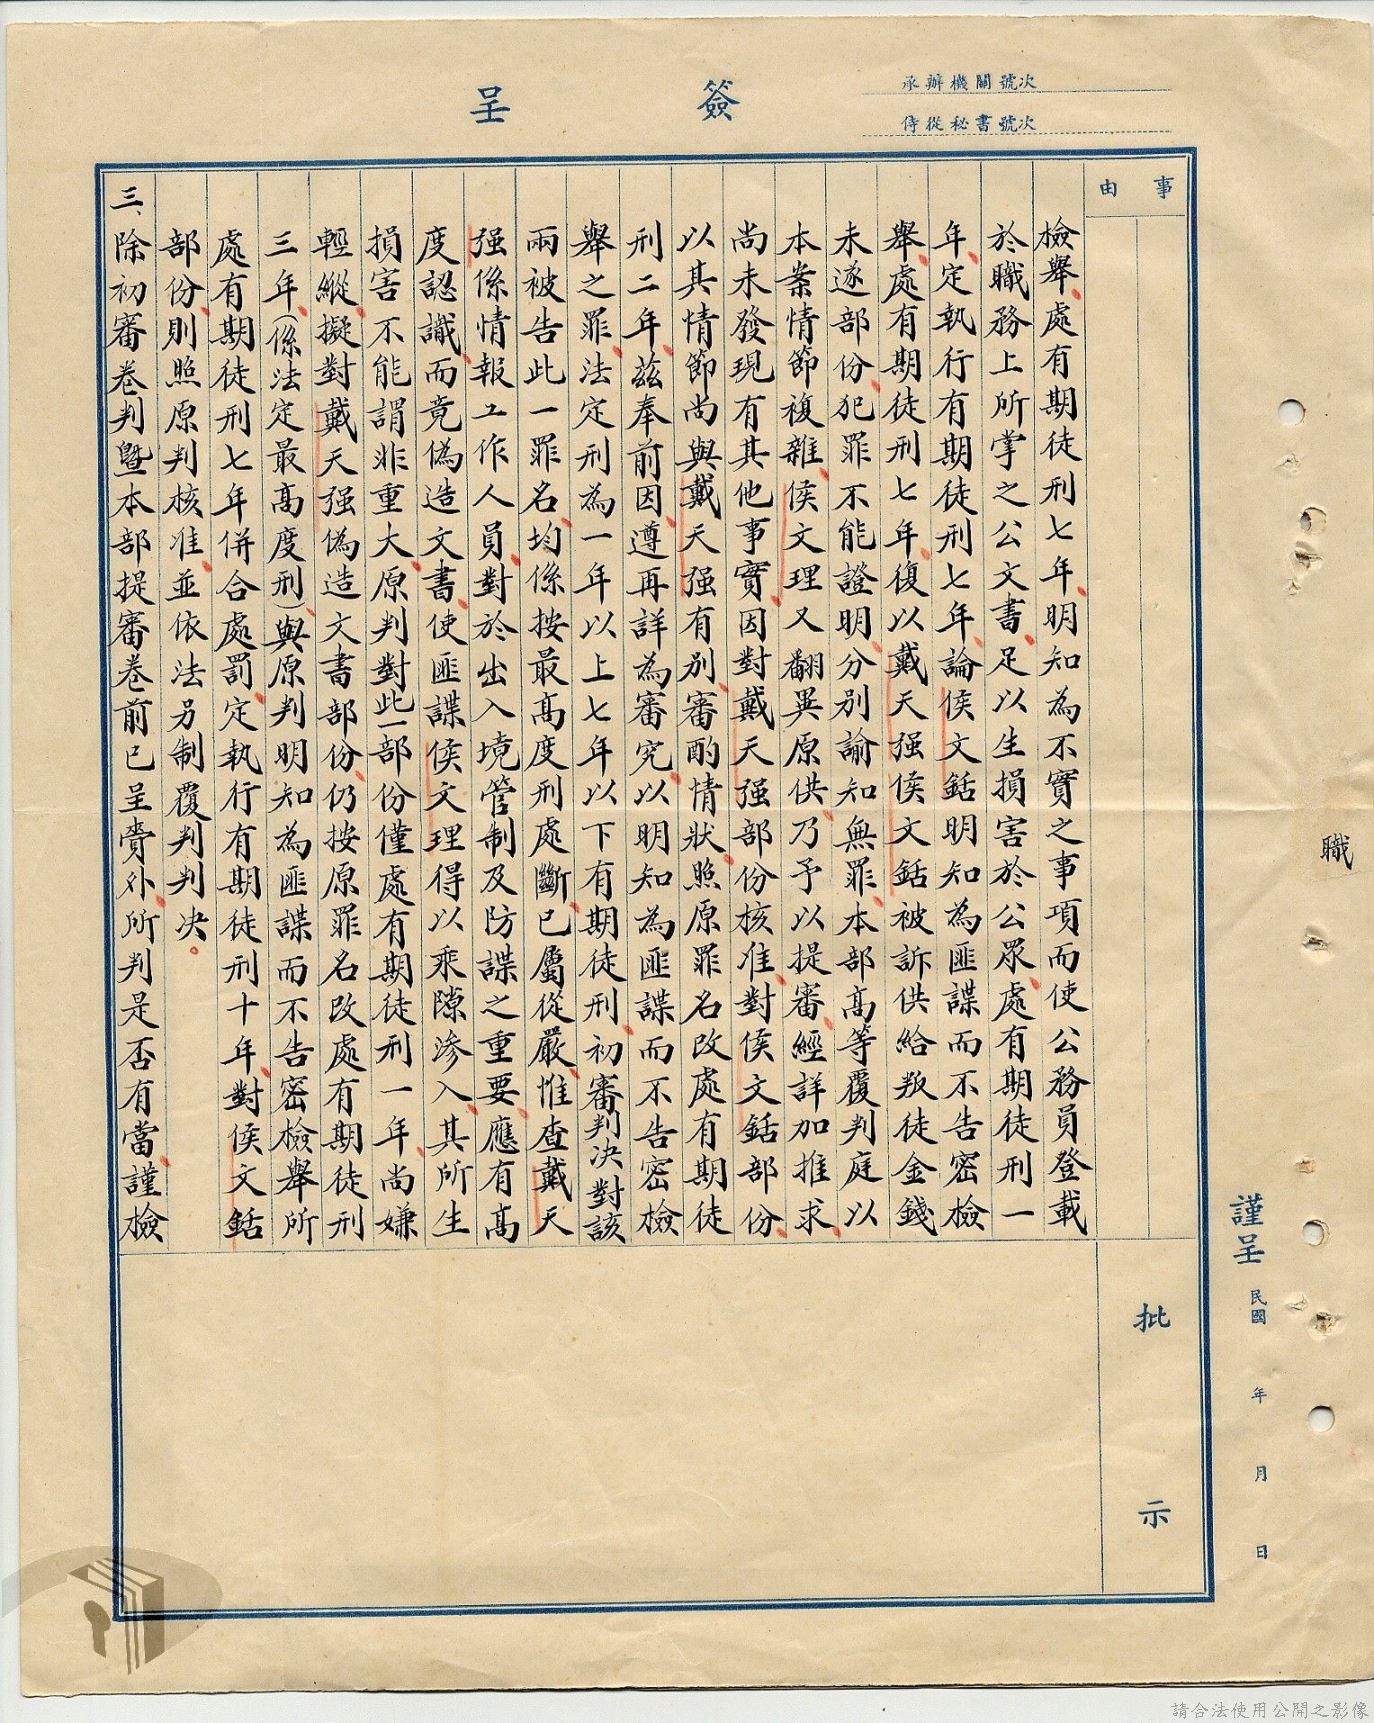 承辦機關號次
侍從秘書號次
簽呈
事由
檢舉處有期徒刑七年明知為不實之事項而使公務員登載
於職務上所掌之公文書足以生損害於公眾處有期徒刑一
年定執行有期徒刑七年論侯文銛明知為匪諜而不告密檢
舉處有期徒刑七年復以戴天强侯文銛被訴供給叛徒金錢
未遂部份犯罪不能證明分別諭知無罪本部高等覆判庭以
本案情節複雜侯文理又翻異原供乃予以提審經詳加推求
尚未發現有其他事實因對戴天强部份核准對侯文銛部份
以其情節尚與戴天强有別審酌情狀照原罪名改處有期徒
刑二年茲奉前因遵再詳為審究以明知為匪諜而不告密檢
舉之罪法定刑為一年以上七年以下有期徒刑初審判決對該
兩被告此一罪名均係按最高度刑處斷已屬從嚴惟查戴天
强係情報工作人員對於出入境管制及防諜之重要應有高
度認識而竟偽造文書使匪諜侯文理得以乘隙滲入其所生
損害不能謂非重大原判對此一部份僅處有期徒刑一年尚嫌
輕縱擬對戴天强偽造文書部份仍按原罪名改處有期徒刑
三年(係法定最高度刑)與原判明知為匪諜而不告密檢舉所
處有期徒刑七年併合處罰定執行有期徒刑十年對侯文銛
部份則照原判核准並依法另制覆判判决。
三、除初審卷判曁本部提審卷前已呈賫外所判是否有當謹檢
批示
職
謹呈
民國 年 月 日
請合法使用公開之影像